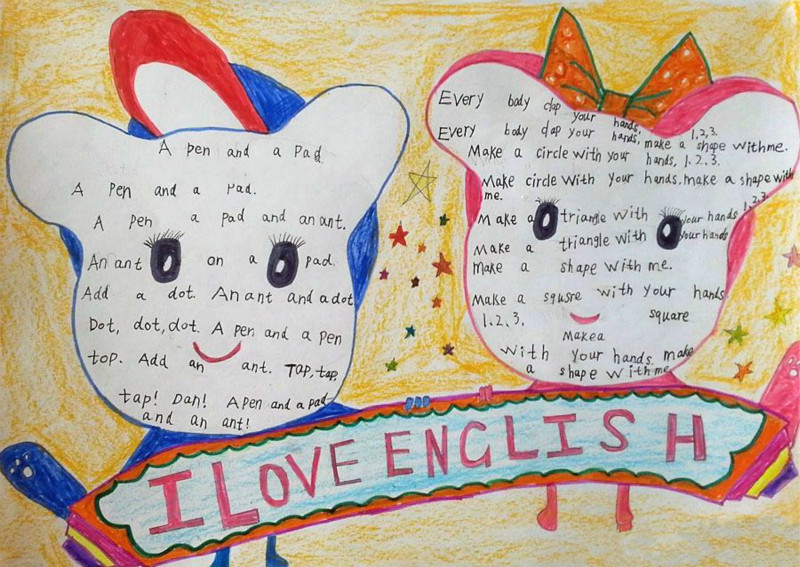 A pen and a pad.
A pen and a pad.
A pen a pad and an ant.
An ant on a pad.
Add a dot. An ant and a dot
Dot, dot, dot. A pen and a pen
top. Add an ant. Tap, tap,
tap! Dah! A pen and a pad
and an ant!
Every body clap your hands, 1,2,3.
Every body clap your hands, make a shape with me.
Make a circle with your hands, 1.2.3.
Make circle with your hands. make a shape with
me.
Make a triangle with your hands 1.2.3.
Make a triangle with your hands
Make a shape with me.
Make a squsre with your hands
1.2.3. square
Make a
with your hands. make
a shape with me
I LOVE ENGLISH